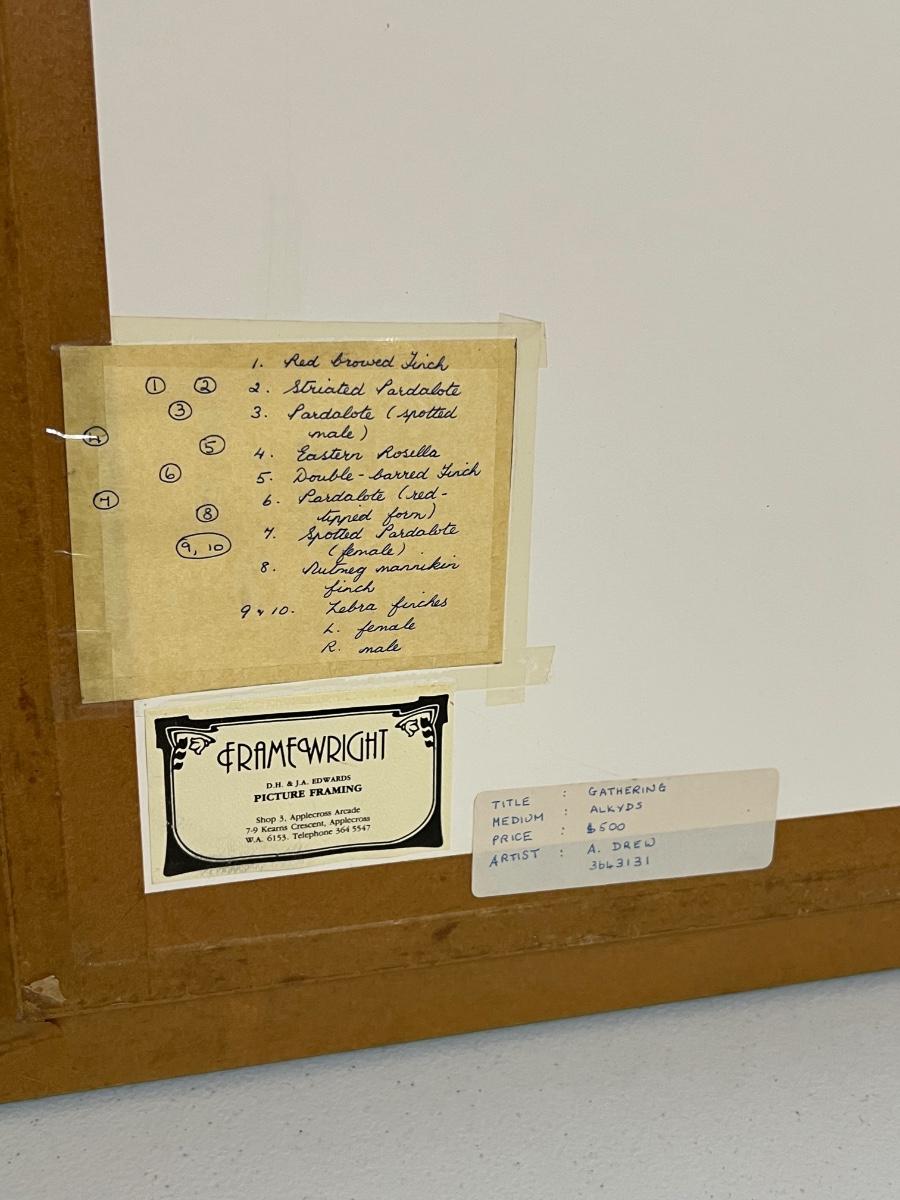 1. Red browed Finch
1 2 2. Striated Pardalote
3 3. Pardalote (spotted
male)
4 4. Eastern Rosella
5 5. Double-barred Finch
6 6. Pardalote (red-
tipped form)
7 7. Spotted Pardalote
(female).
8 8. Nutmeg mannikin
finch
9, 10 9 & 10. Zebra finches
L. female
R. male
FRAMEWRIGHT
D.H. & J.A. EDWARDS
PICTURE FRAMING
Shop 3, Applecross Arcade
7-9 Kearns Crescent, Applecross
W.A. 6153. Telephone 364 5547
TITLE : GATHERING
MEDIUM : ALKYDS
PRICE : $500
ARTIST : A. DREW
3643131